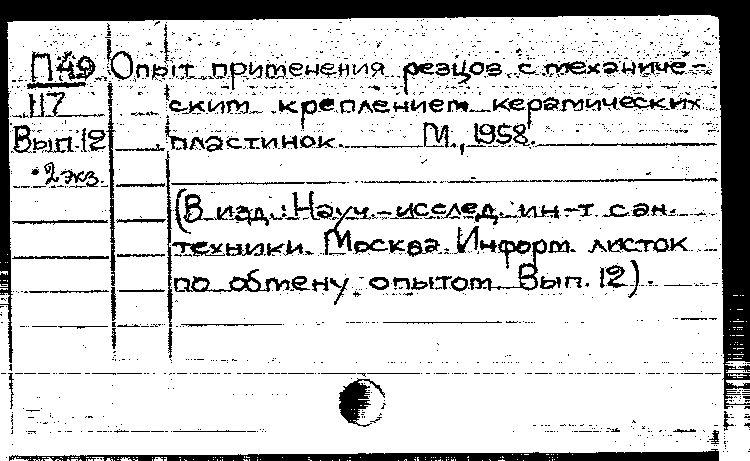 П49 Опыт применения резцов с механиче-
117 ским креплением керамических
Вып.12 пластинок. М., 1958.
2 экз.
(В изд.: Науч.-исслед. ин-т сан.
техники. Москва. Информ. листок
по обмену опытом. Вып. 12).